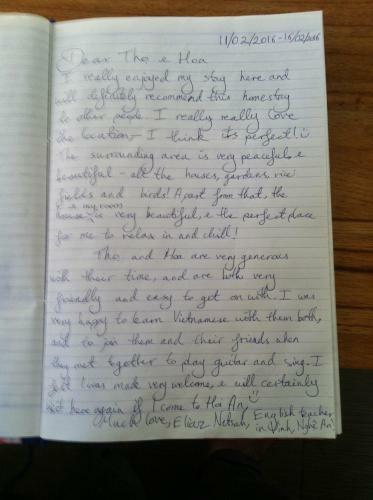 11/02/2016 - 15/02/2016
Dear Tho & Hoa
I really enjoyed my stay here and
will definitely recommend this homestay
to other people. I really really love
the location – I think its perfect! :)
The surrounding area is very peaceful &
beautiful – all the houses, gardens, rice
fields and birds! Apart from that, the
house & my room is very beautiful, & the perfect place
for me to relax in and chill!
Tho and Hoa are very generous
with their time, and are both very
friendly and easy to get on with. I was
very happy to learn Vietnamese with them both,
and to join them and their friends when
they met together to play guitar and sing. I
felt I was made very welcome, & will certainly
visit here again if I come to Hoi An :)
Much love, English teacher
in Vinh, Nghe An